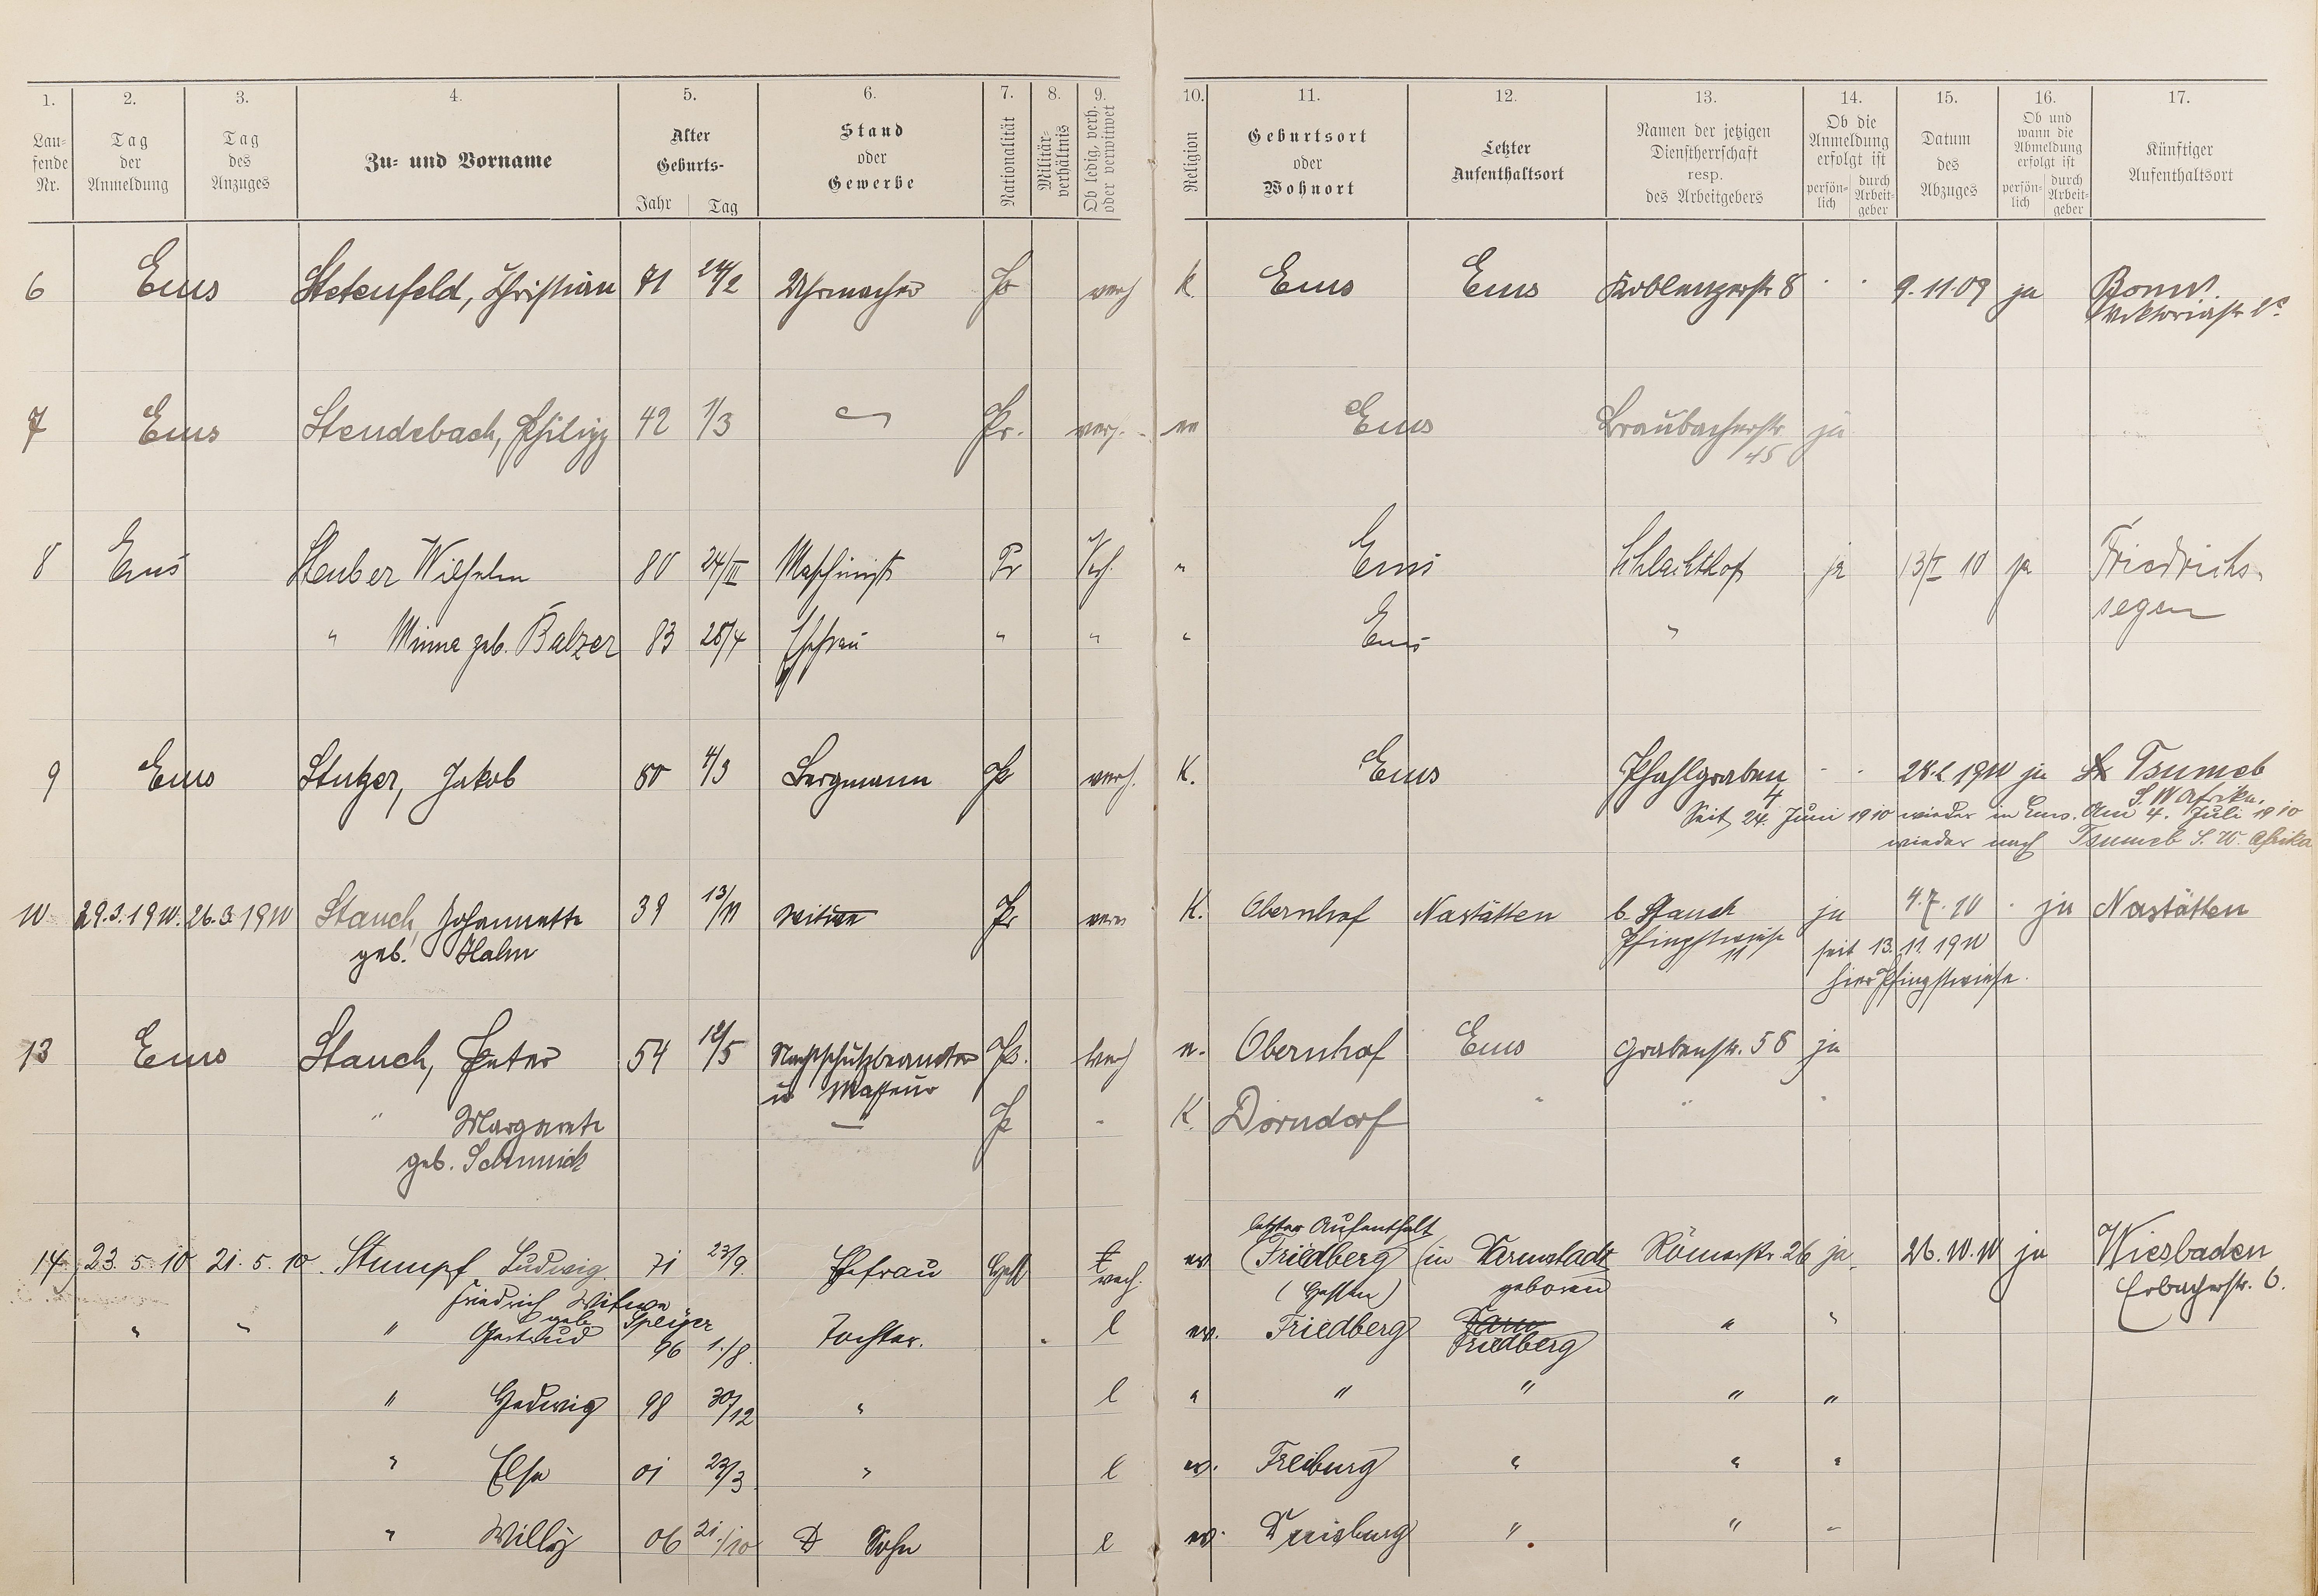 1. 2. 3. 4. 5. 6. 7. 8. 9. 10. 11. 12. 13. 14. 15. 16. 17.
Lau-fende Nr. Tag der Anmeldung Tag des Anzuges Zu- und Vorname Alter Geburts- Jahr Tag Stand oder Gewerbe Nationalität Militär-verhältnis Ob ledig, verh. oder verwitwet Religion Geburtsort oder Wohnort Letzter Aufenthaltsort Namen der jetzigen Dienstherrschaft resp. des Arbeitgebers Ob die Anmeldung erfolgt ist persön-lich durch Arbeit-geber Datum des Abzuges Ob und wann die Abmeldung erfolgt ist persön-lich durch Arbeit-geber Künftiger Aufenthaltsort
6 Ems Stetenfeld, Christian 71 24/2 Uhrmacher Pr verh K. Ems Ems Koblenzerstr 8 9.11.09 ja Bonn.
Viktoriastr
7 Ems Stendebach, Philipp 42 1/3 Pr. verh. ev Ems Braubacherstr ja
45
8 Ems Steuber Wilhelm 80 24/III Maschinist Pr Vrh. " Ems Schlachthof ja 13/I 10 ja Friedrichs-
segen
" Minna geb. Balzer 83 28/4 Ehefrau " " " Ems "
9 Ems Stutzer, Jakob 80 4/3 Bergmann Pr verh. K. Ems Pfahlgraben 28.2.1910 ja Tsumeb
4 S.W Afrika.
Seit 24. Juni 1910 wieder in Ems. Am 4. Juli 1910
wieder nach Tsumeb S. W. Afrika
10 29.3.1910. 26.3.1910 Stauch, Johannette 39 13/11 Witwe Pr verw K. Obernhof Nastätten b. Stauch ja 4.7.10 ja Nastätten
geb. Halm Pfingstwiese 11 seit 13.11.1910
hier Pfingstwiese.
13 Ems Stauch, Peter 54 12/5 Nachtschutzbeamter Pr. verh e. Obernhof Ems Grabenstr. 58 ja
u Masseur
" Margarete — Pr " K. Dorndorf " " "
geb. Schmich
letzter Aufenthalt
14. 23.5.10 21.5.10. Stumpf Ludwig. 71 23/9. Ehefrau Hess verh. ev (Friedberg (in Darmstadt Römerstr. 26 ja. 26.10.10 ja Wiesbaden
Friedrich Witwe (Hessen) geboren Erbacherstr. 6.
geb. Speiger
" " " Gertrud 96 1./8. Tochter. l ev. Friedberg Darm " "
Friedberg
" Hedwig 98 30/12 " l " " " " "
" Else 01 23/3 " l ev. Freiburg " " "
" Willy 06 21./10 Sohn l ev. Duisburg " " "